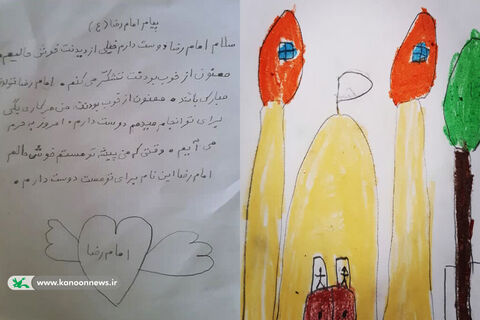 پیام امام رضا (ع)
سلام امام رضا دوست دارم خیلی از دیدنت خوش حالیم
ممنون از خوب بودنت تشکر می کنم. امام رضا تولدت
مبارک باشد. ممنون از خوب بودنت. من هر کاری بگی
برای تو انجام میدهم دوست دارم. امروز به حرم
می آییم. وقتی که من پیش تو هستم خوش حالم
امام رضا این نام برای تو هست دوست دارم.
امام رضا
www.kanoonnews.ir